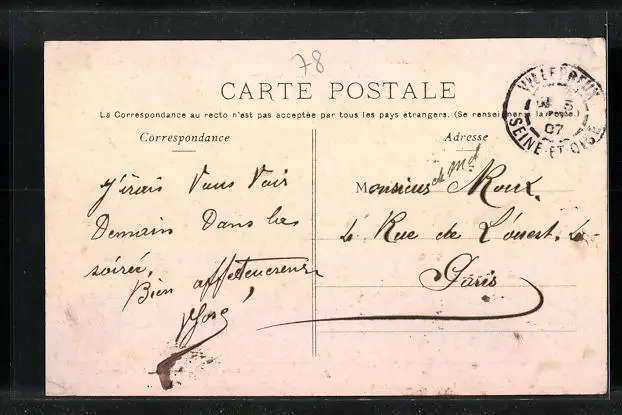 78
CARTE POSTALE
La Correspondance au recto n'est pas acceptée par tous les pays étrangers. (Se renseigner à la Poste.)
VILLEPREUX
5
07
SEINE-ET-OISE
Correspondance
J'irais Vous Voir
Demain Dans la
soirée,
Bien affectueusement
José
Adresse
Monsieur et Md Roux
Rue de L'ouest
Paris